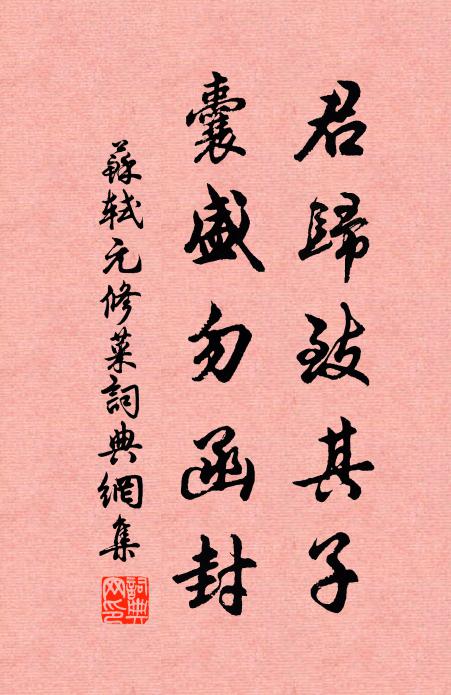 君歸致其子
囊盛勿函封
蘇軾元修菜詞典網集
詞典網印